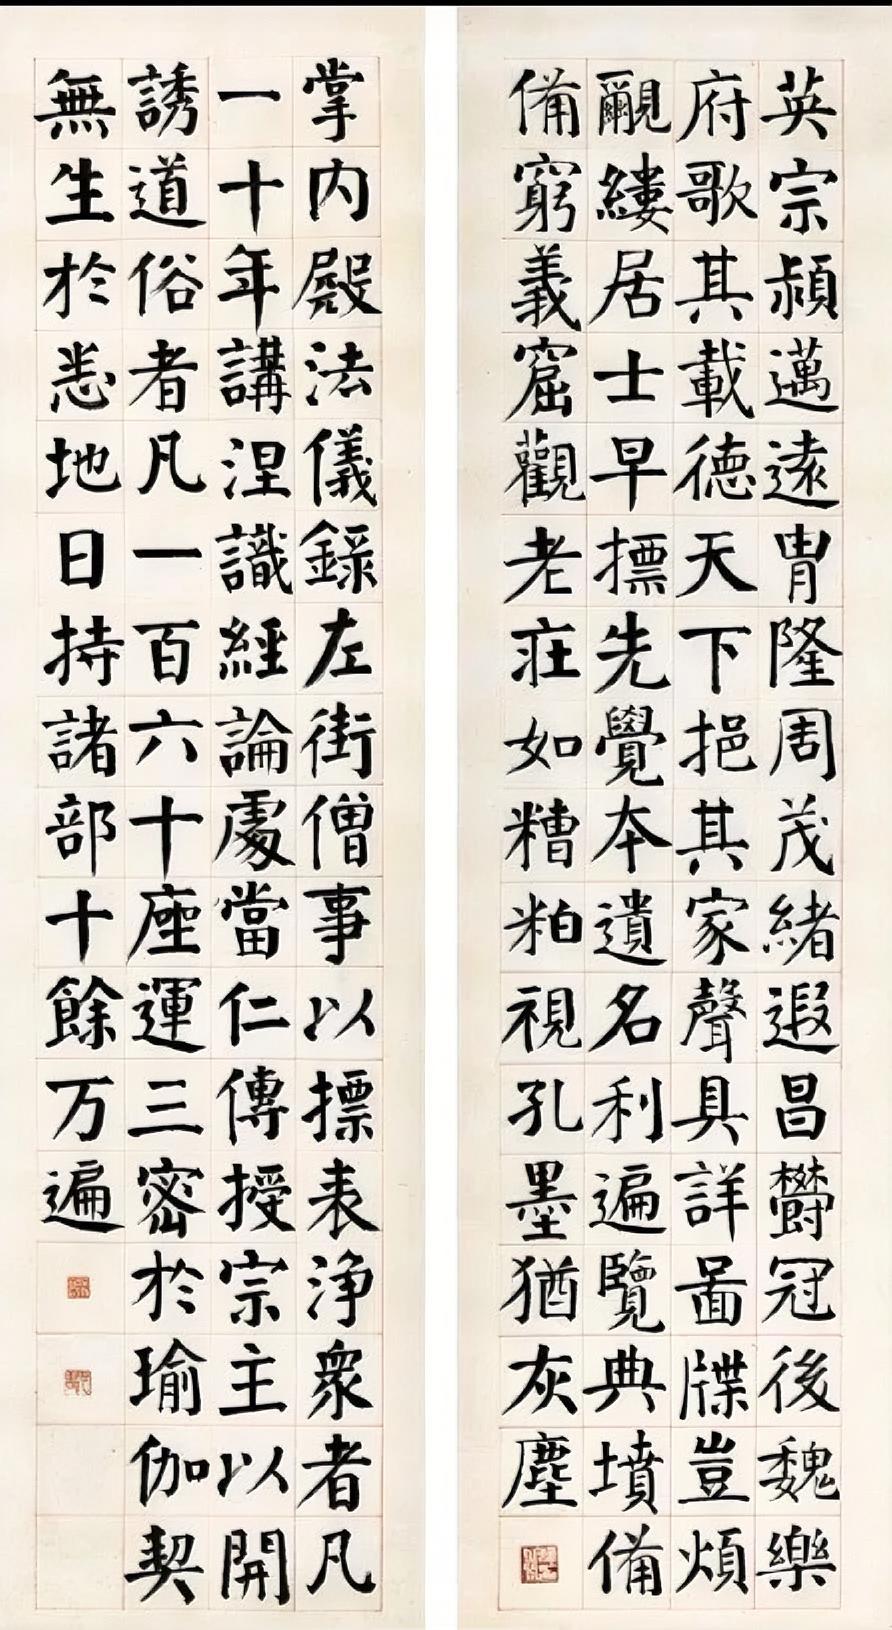 英宗頴邁遠胄隆周茂緒遐昌欝冠後魏樂
府歌其載德天下挹其家聲具詳啚牒豈煩
覼縷居士早摽先覺夲遺名利遍覽典墳備
備窮義窟觀老莊如糟粕視孔墨猶灰塵
掌内殿法儀錄左街僧事以摽表浄衆者凡
一十年講涅識經論處當仁傳授宗主以開
誘道俗者凡一百六十座運三密於瑜伽契
無生於悉地日持諸部十餘万遍